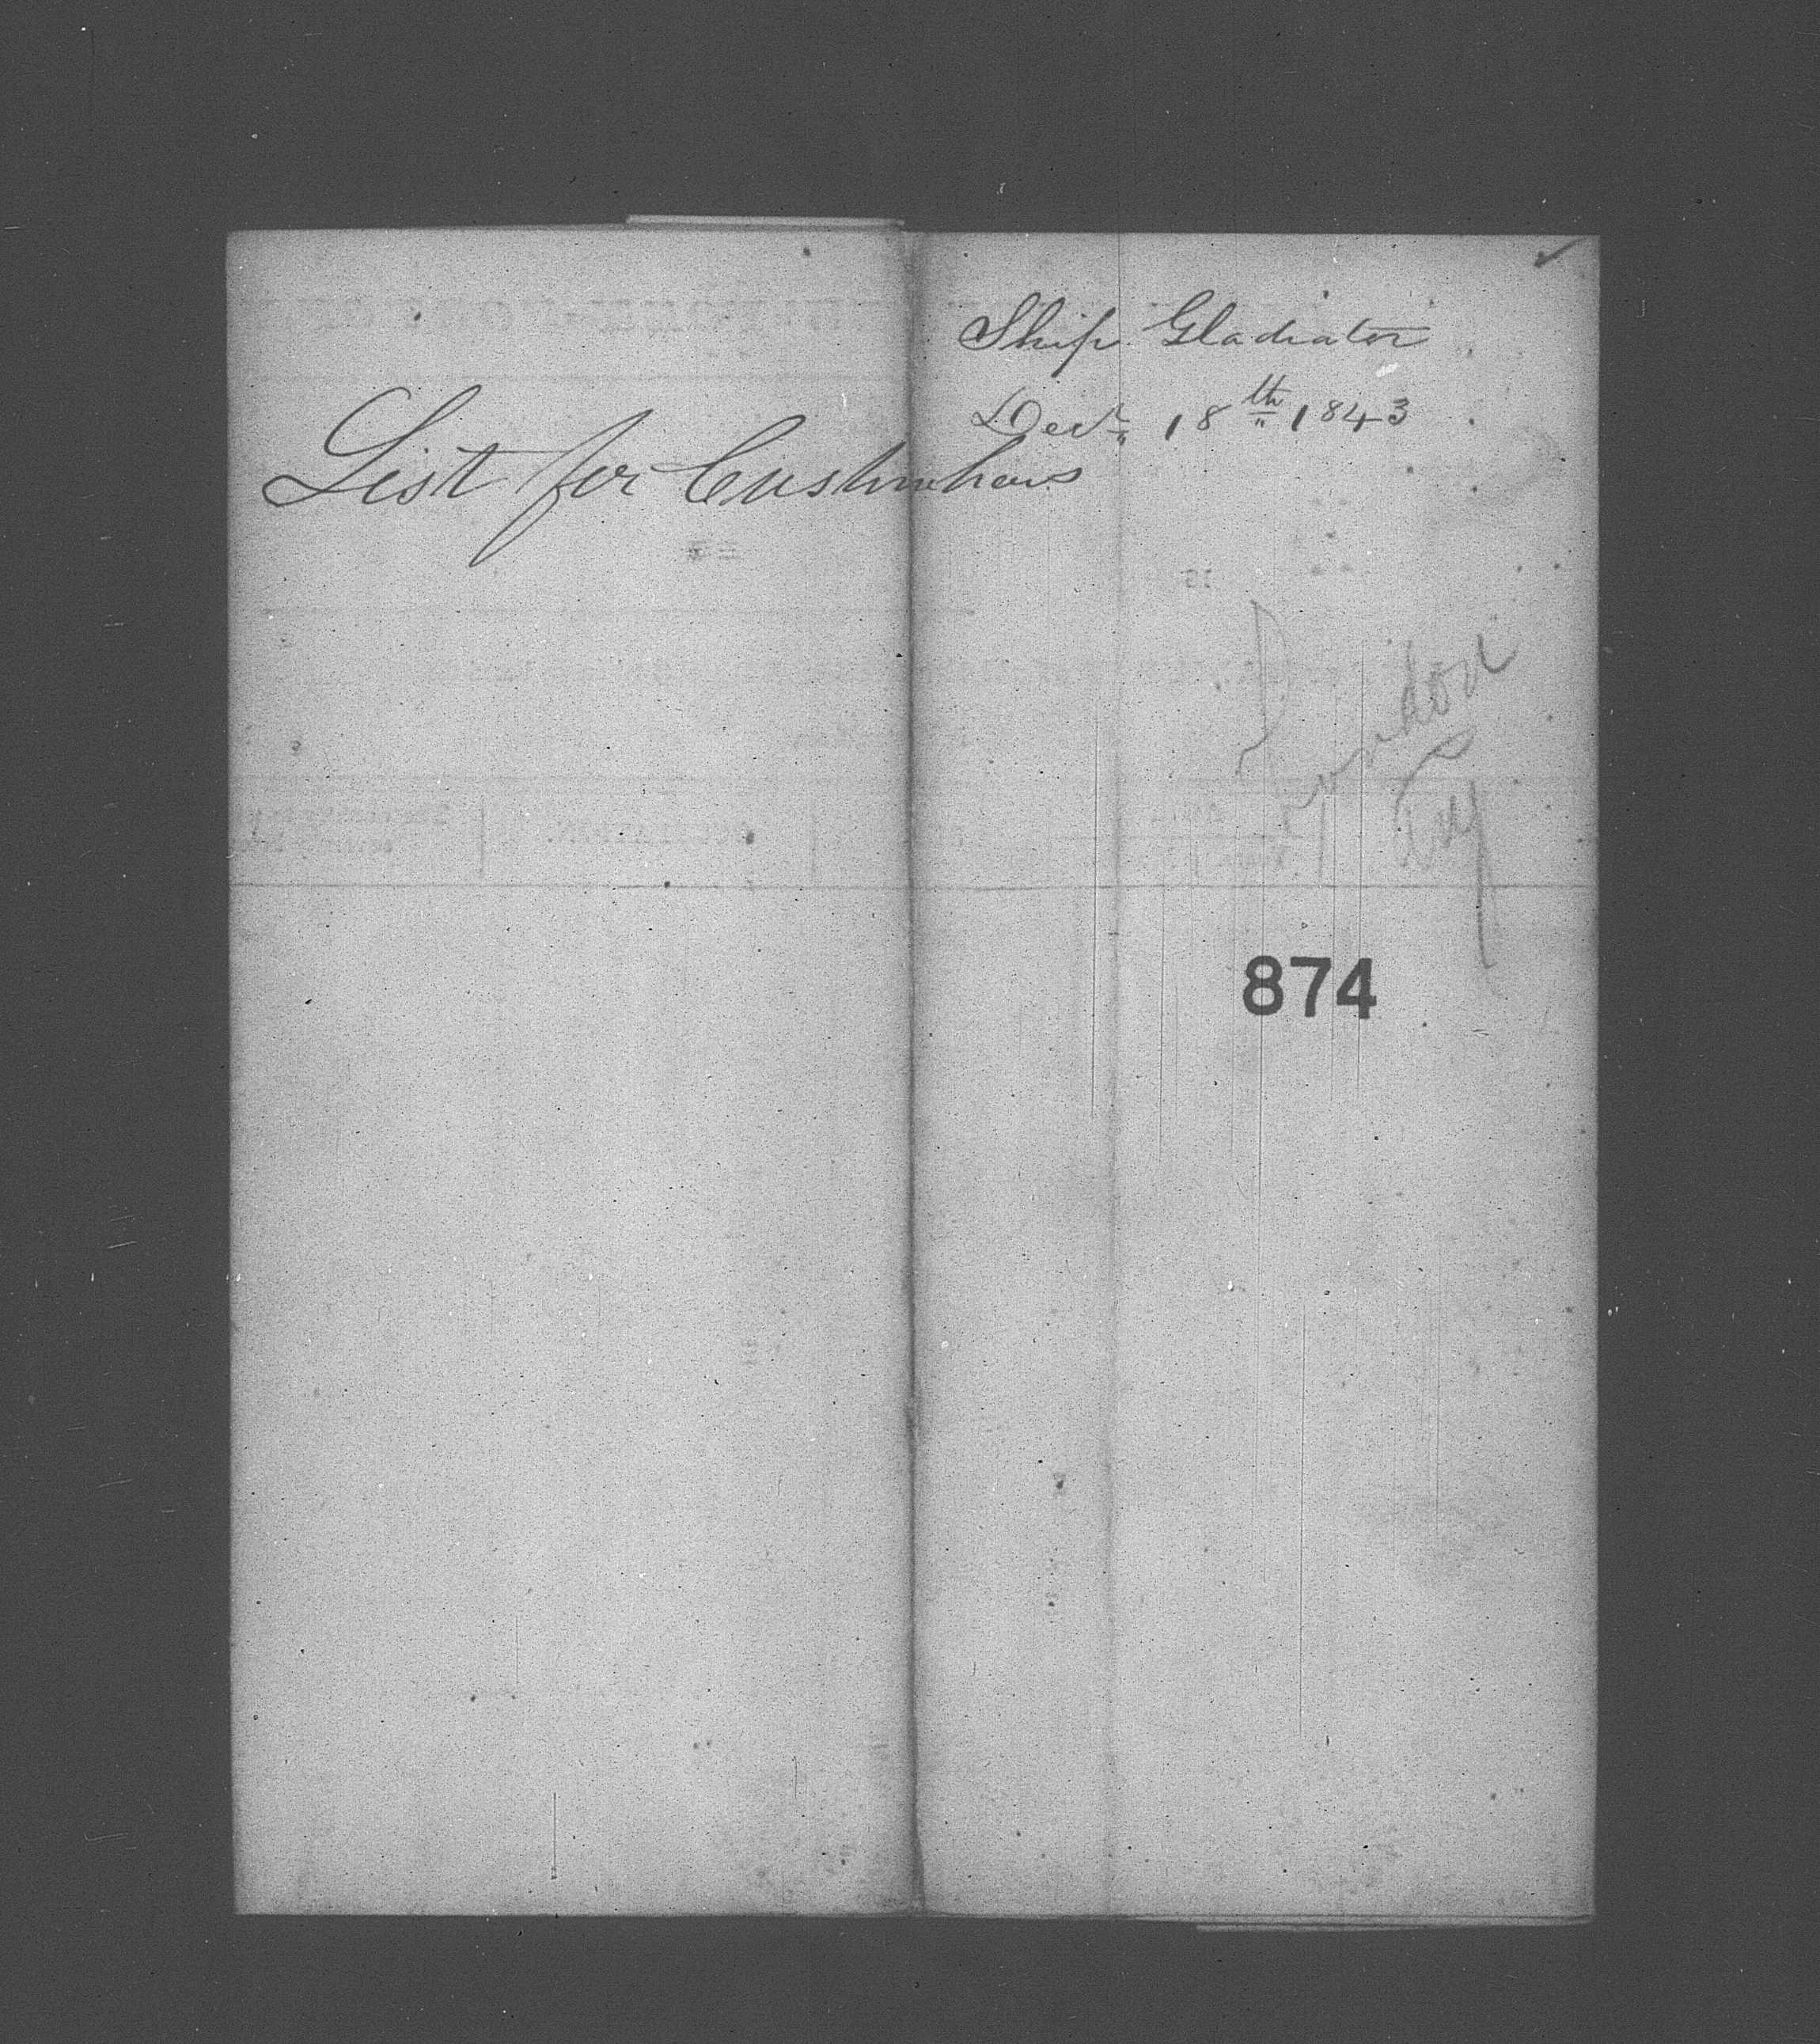 Ship Gladiator
Decr 18th 1843
List for Customhous
London
874